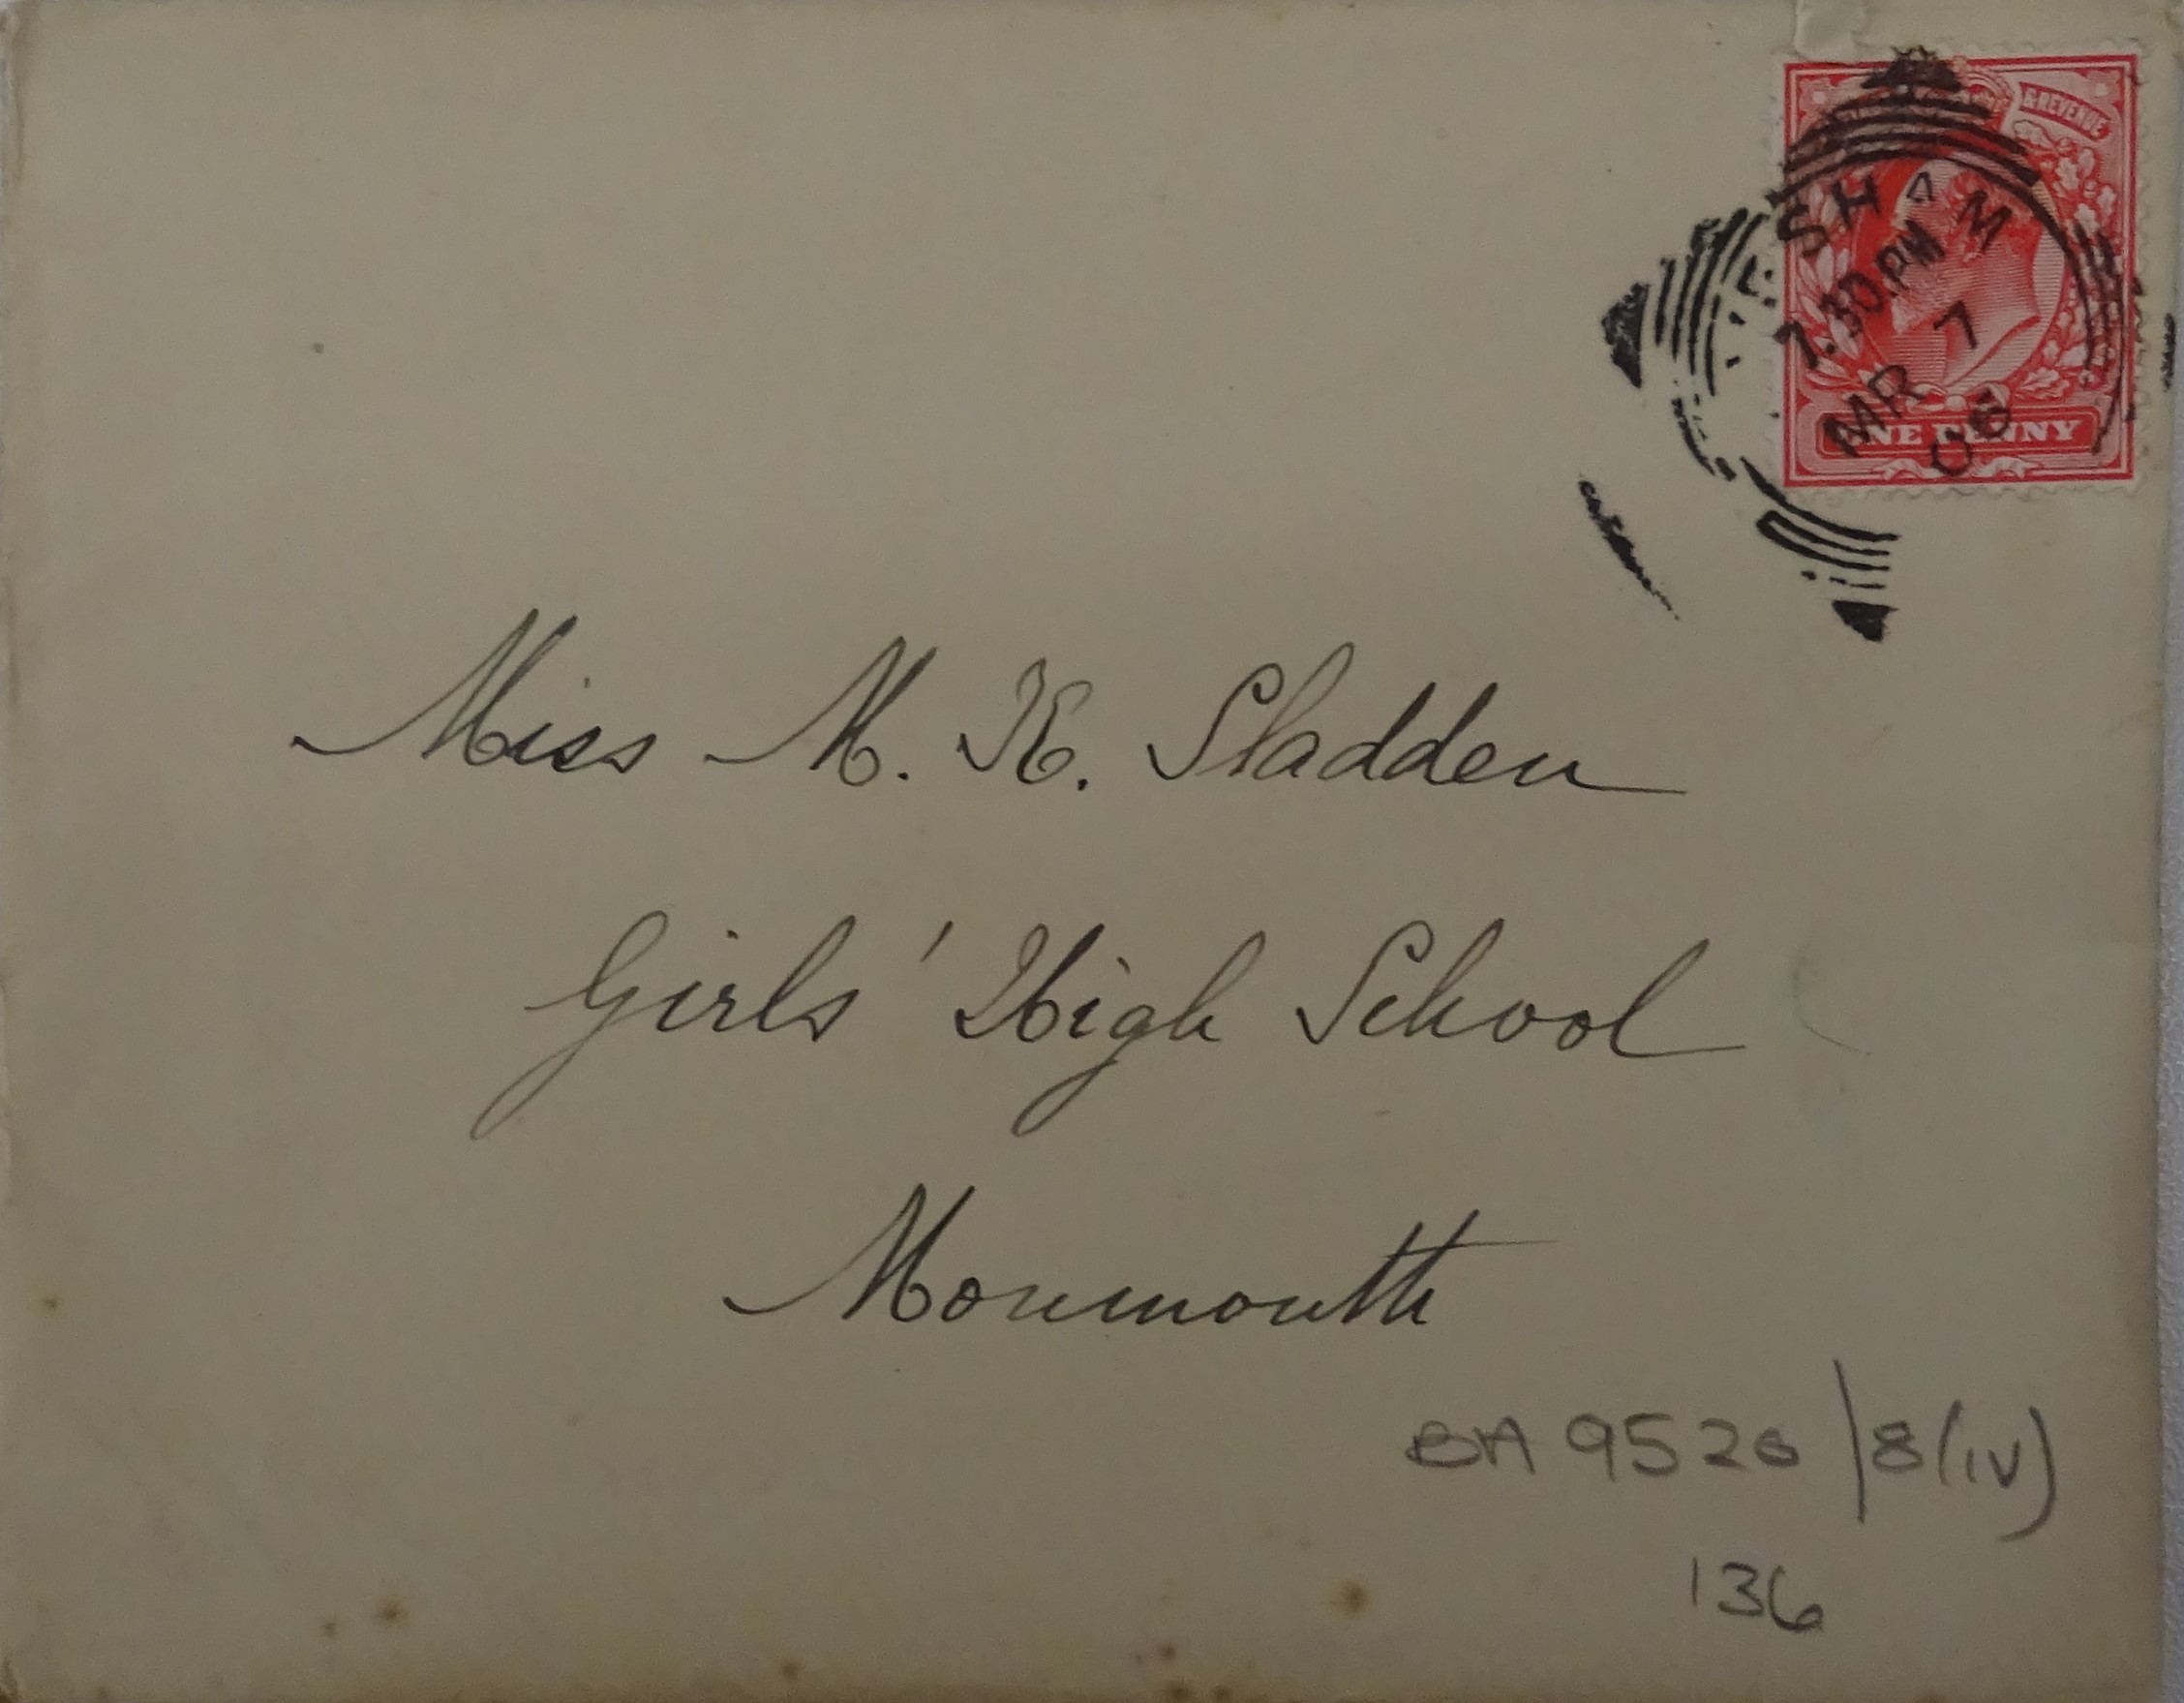 & REVENUE
SHAM
7.30 PM
MR 7
06
ONE PENNY
Miss M. E. Sladden
Girls' High School
Monmouth
BA 9520/8(iv)
136